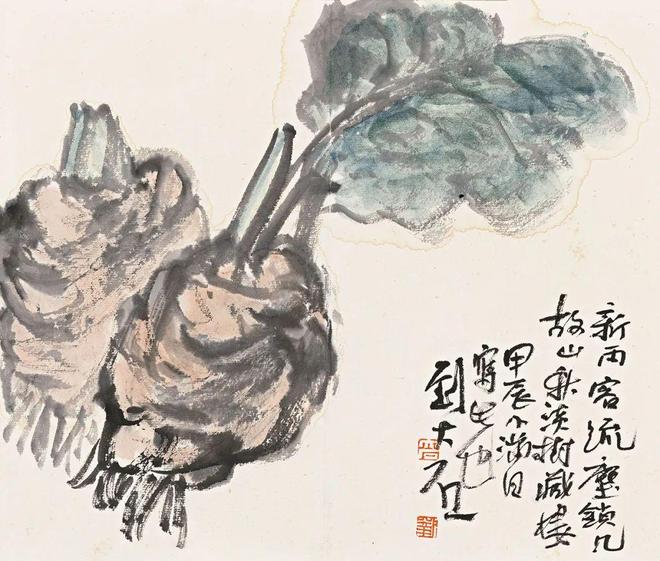 新雨客流塵鎖几
故山秋淡樹藏樓
甲辰小满日
寫
劉大